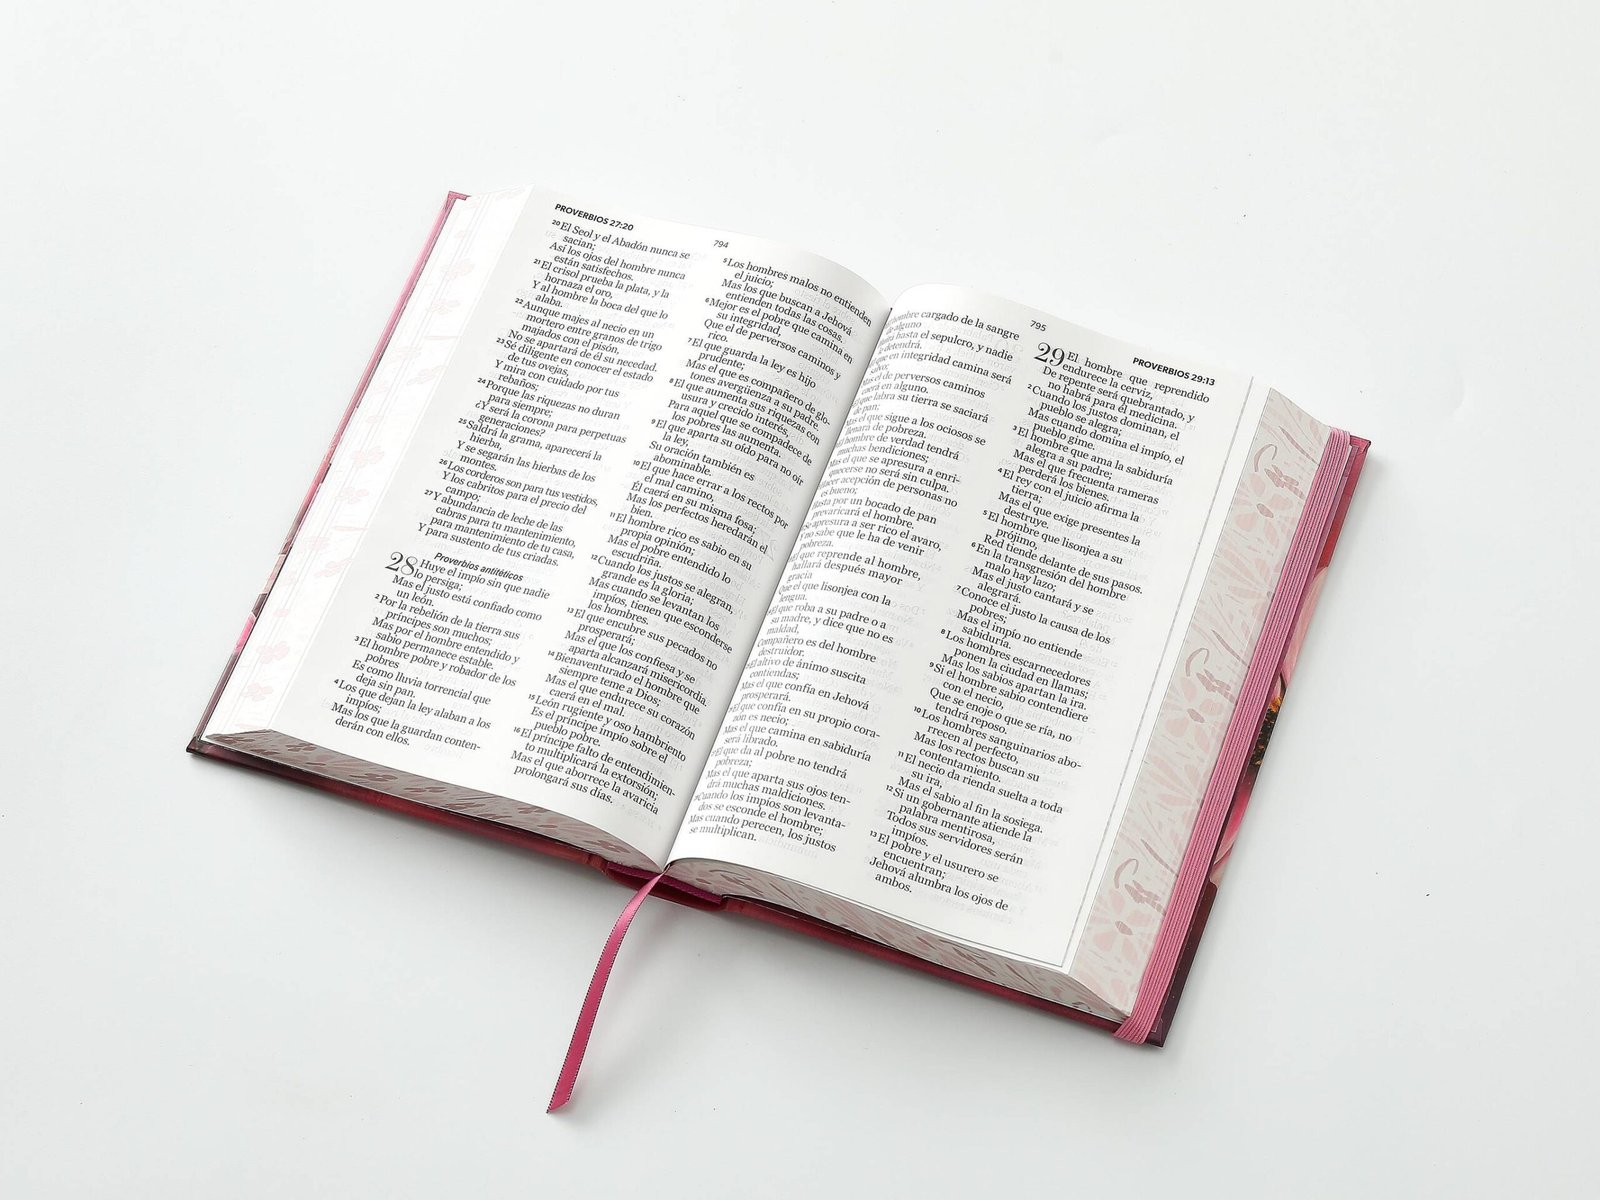 PROVERBIOS 27:20
794
20 El Seol y el Abadón nunca se
sacian;
Así los ojos del hombre nunca
están satisfechos.
21 El crisol prueba la plata, y la
hornaza el oro,
Y al hombre la boca del que lo
alaba.
22 Aunque majes al necio en un
mortero entre granos de trigo
majados con el pisón,
No se apartará de él su necedad.
23 Sé diligente en conocer el estado
de tus ovejas,
Y mira con cuidado por tus
rebaños;
24 Porque las riquezas no duran
para siempre;
¿Y será la corona para perpetuas
generaciones?
25 Saldrá la grama, aparecerá la
hierba,
Y se segarán las hierbas de los
montes.
26 Los corderos son para tus vestidos,
Y los cabritos para el precio del
campo;
27 Y abundancia de leche de las
cabras para tu mantenimiento,
para mantenimiento de tu casa,
Y para sustento de tus criadas.
Proverbios antitéticos
28 Huye el impío sin que nadie
lo persiga;
Mas el justo está confiado como
un león.
2 Por la rebelión de la tierra sus
príncipes son muchos;
Mas por el hombre entendido y
sabio permanece estable.
3 El hombre pobre y robador de los
pobres
Es como lluvia torrencial que
deja sin pan.
4 Los que dejan la ley alaban a los
impíos;
Mas los que la guardan conten-
derán con ellos.
5 Los hombres malos no entienden
el juicio;
Mas los que buscan a Jehová
entienden todas las cosas.
6 Mejor es el pobre que camina en
su integridad,
Que el de perversos caminos y
rico.
7 El que guarda la ley es hijo
prudente;
Mas el que es compañero de glo-
tones avergüenza a su padre.
8 El que aumenta sus riquezas con
usura y crecido interés,
Para aquel que se compadece de
los pobres las aumenta.
9 El que aparta su oído para no oír
la ley,
Su oración también es
abominable.
10 El que hace errar a los rectos por
el mal camino,
Él caerá en su misma fosa;
Mas los perfectos heredarán el
bien.
11 El hombre rico es sabio en su
propia opinión;
Mas el pobre entendido lo
escudriña.
12 Cuando los justos se alegran,
grande es la gloria;
Mas cuando se levantan los
impíos, tienen que esconderse
los hombres.
13 El que encubre sus pecados no
prosperará;
Mas el que los confiesa y se
aparta alcanzará misericordia.
14 Bienaventurado el hombre que
siempre teme a Dios;
Mas el que endurece su corazón
caerá en el mal.
15 León rugiente y oso hambriento
Es el príncipe impío sobre el
pueblo pobre.
16 El príncipe falto de entendimien-
to multiplicará la extorsión;
Mas el que aborrece la avaricia
prolongará sus días.
795
PROVERBIOS 29:13
hombre cargado de la sangre
de alguno
hasta el sepulcro, y nadie
detendrá.
que en integridad camina será
salvo;
Mas el de perversos caminos
caerá en alguno.
que labra su tierra se saciará
de pan;
Mas el que sigue a los ociosos se
llenará de pobreza.
hombre de verdad tendrá
muchas bendiciones;
Mas el que se apresura a enri-
quecerse no será sin culpa.
Hacer acepción de personas no
es bueno;
Hasta por un bocado de pan
prevaricará el hombre.
Se apresura a ser rico el avaro,
Y no sabe que le ha de venir
pobreza.
El que reprende al hombre,
hallará después mayor
gracia
Que el que lisonjea con la
lengua.
El que roba a su padre o a
su madre, y dice que no es
maldad,
Compañero es del hombre
destruidor.
El altivo de ánimo suscita
contiendas;
Mas el que confía en Jehová
prosperará.
El que confía en su propio cora-
zón es necio;
Mas el que camina en sabiduría
será librado.
El que da al pobre no tendrá
pobreza;
Mas el que aparta sus ojos ten-
drá muchas maldiciones.
Cuando los impíos son levanta-
dos se esconde el hombre;
Mas cuando perecen, los justos
se multiplican.
29 El hombre que reprendido
endurece la cerviz,
De repente será quebrantado, y
no habrá para él medicina.
2 Cuando los justos dominan, el
pueblo se alegra;
Mas cuando domina el impío, el
pueblo gime.
3 El hombre que ama la sabiduría
alegra a su padre;
Mas el que frecuenta rameras
perderá los bienes.
4 El rey con el juicio afirma la
tierra;
Mas el que exige presentes la
destruye.
5 El hombre que lisonjea a su
prójimo,
Red tiende delante de sus pasos.
6 En la transgresión del hombre
malo hay lazo;
Mas el justo cantará y se
alegrará.
7 Conoce el justo la causa de los
pobres;
Mas el impío no entiende
sabiduría.
8 Los hombres escarnecedores
ponen la ciudad en llamas;
Mas los sabios apartan la ira.
9 Si el hombre sabio contendiere
con el necio,
Que se enoje o que se ría, no
tendrá reposo.
10 Los hombres sanguinarios abo-
rrecen al perfecto,
Mas los rectos buscan su
contentamiento.
11 El necio da rienda suelta a toda
su ira,
Mas el sabio al fin la sosiega.
12 Si un gobernante atiende la
palabra mentirosa,
Todos sus servidores serán
impíos.
13 El pobre y el usurero se
encuentran;
Jehová alumbra los ojos de
ambos.